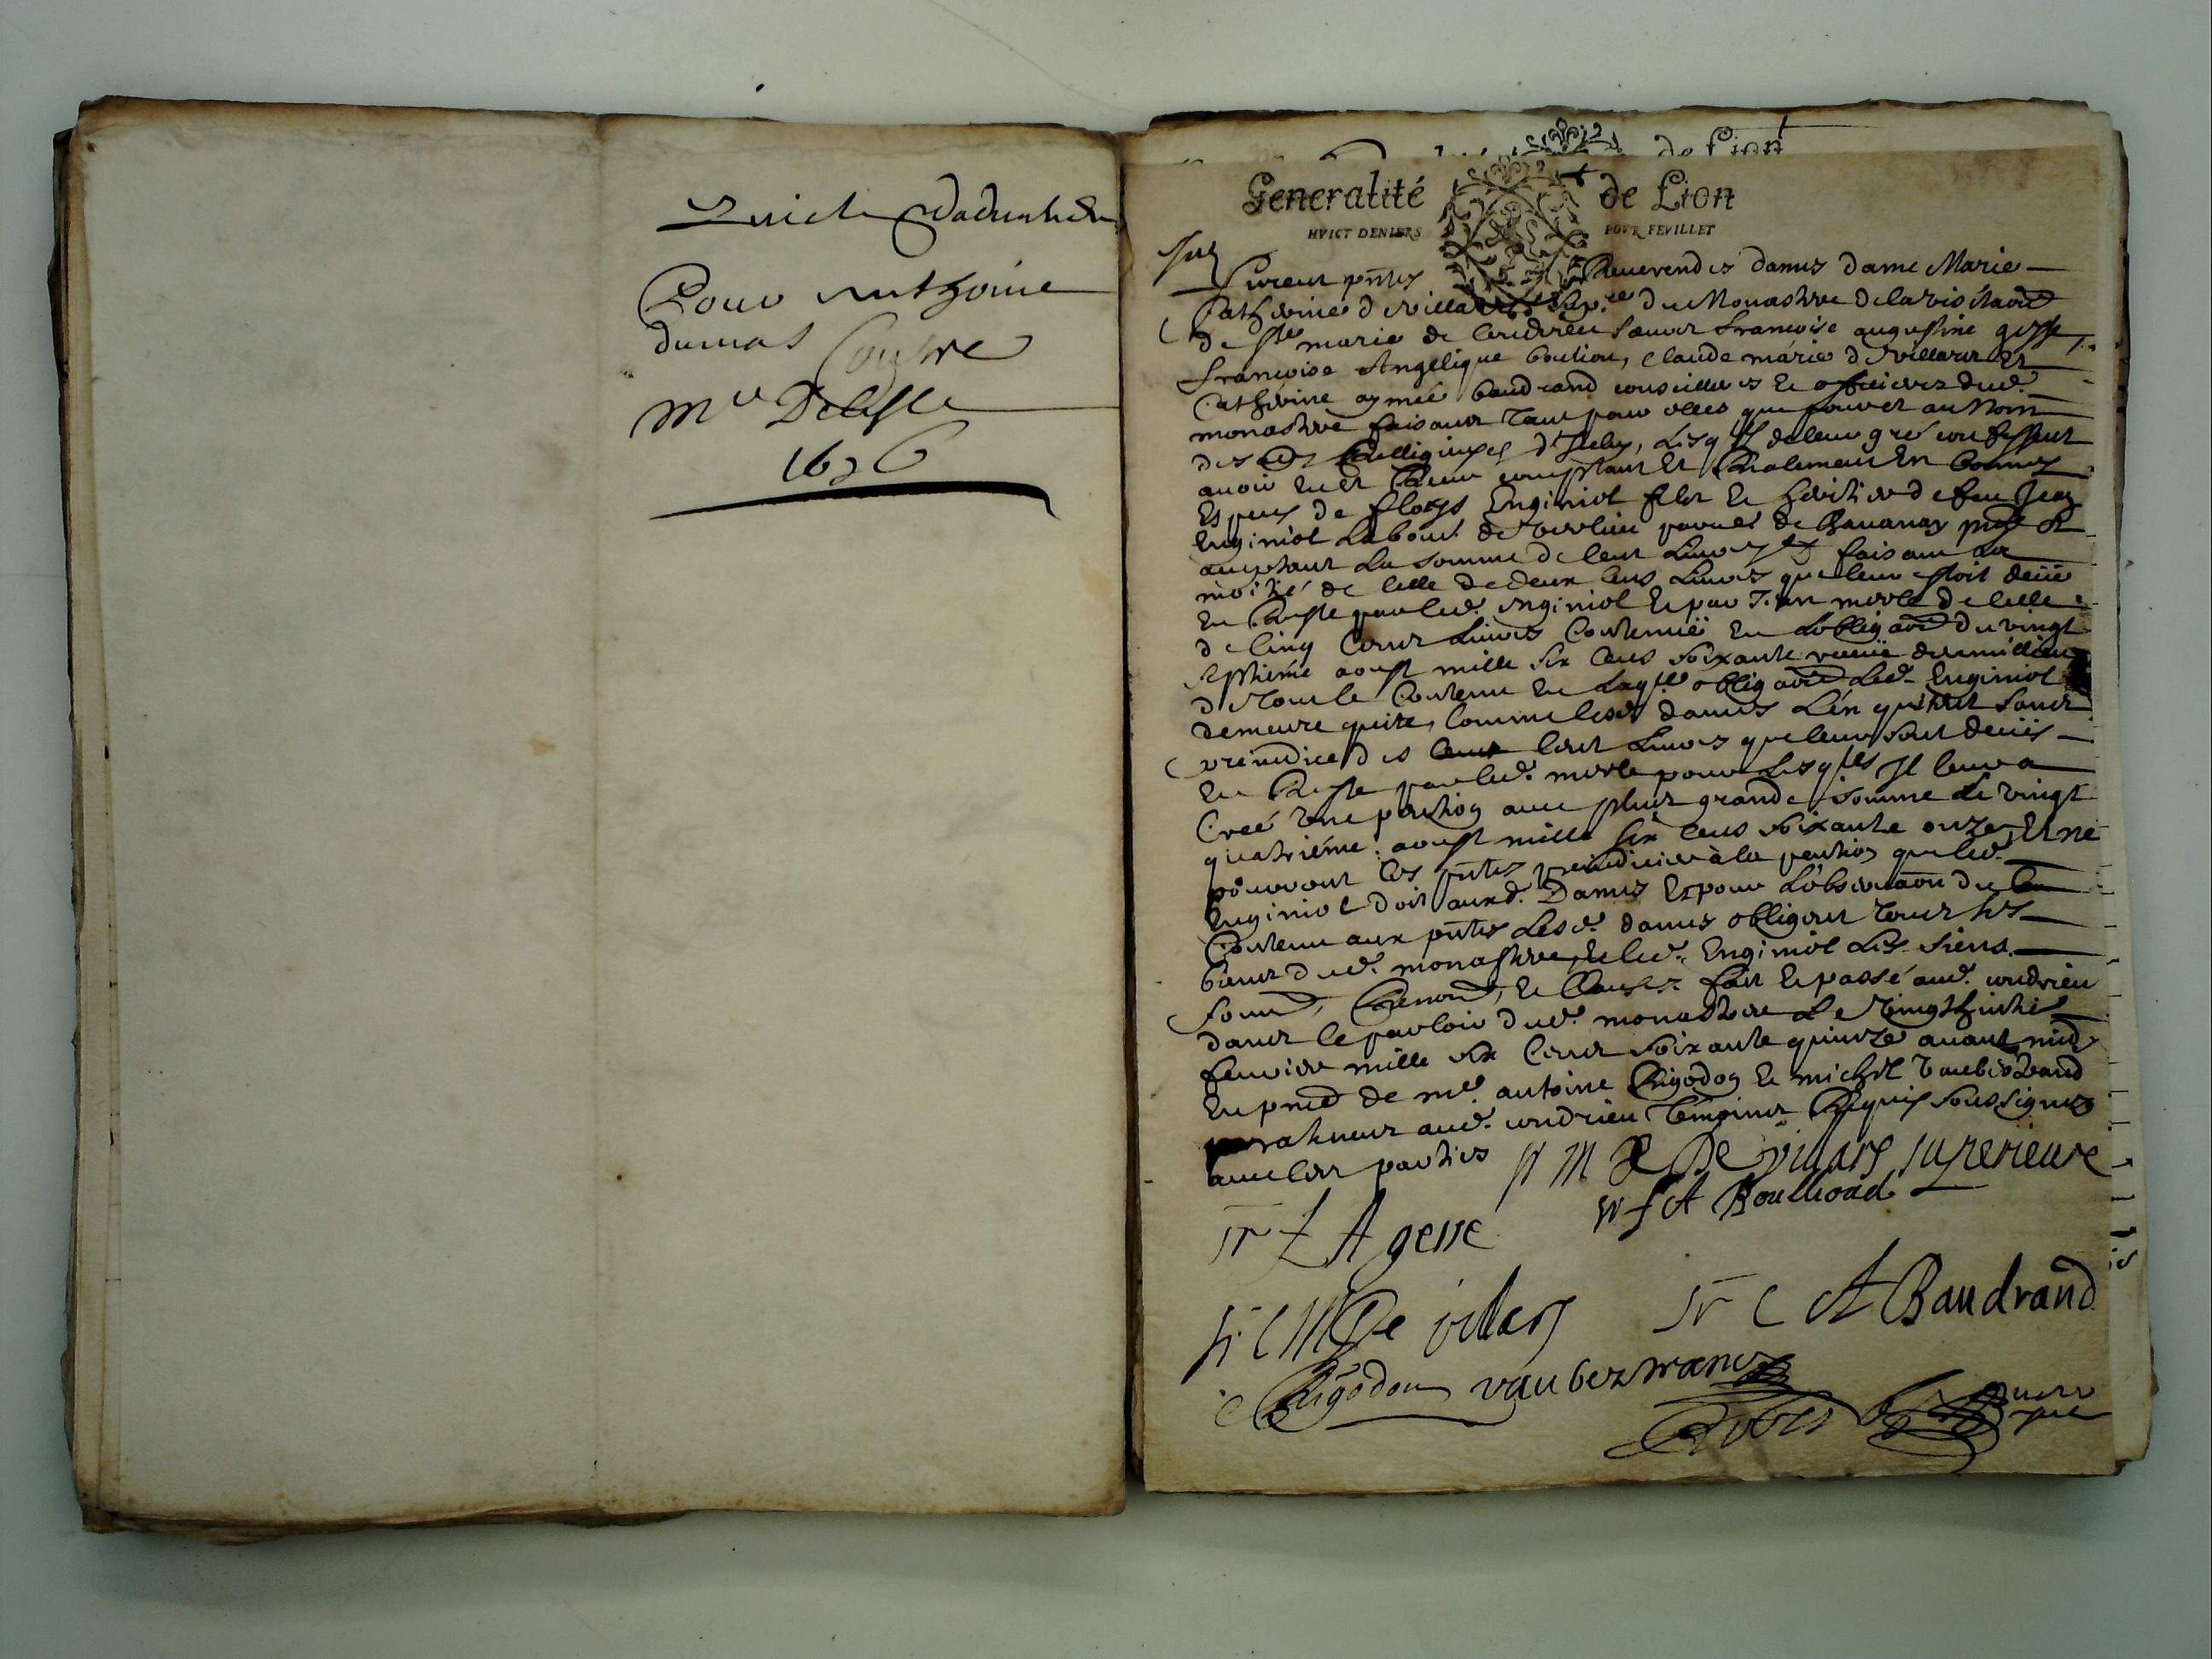 Pour Anthoine
dumas Contre
Me Delisle
1676
de Lion
Generalité de Lion
HVICT DENIERS POVR FEVILLET
furent pntes Reuerendes dames dame Marie
Catherine de villars Supre du Monastere de la visitaon
de ste marie de Condrieu soeurs francoise augustine gesse
francoise Angelique boulioud, Claude marie de villars et
Catherine aymée baudrand conseilleres et officieres dud.
monastere faisant tant pour elles que pour et au nom
des aues Relligieuses d'Icelluy, lesqlles de leur gré confessent
auoir eu et Receu comptant et Reallement en bonnes
Especes de Enginiol filz et heritier de feu Jean
Enginiol Labour. de parroisse de
acceptant La somme de cent Liures faisant la
moitié de celle de deux cens Liures que leur estoit deüe
en Reste par led. Enginiol et par Jean merle de celle
de Cinq Cens Liures Contenüe en L'obligaon du vingt
septiéme aoust mille six cens soixante
de tout le Contenu en laqlle obligaon Led. Enginiol
demeure quite, comme lesd. dames L'en quittent sans
preiudice des cent Liures que leur sont deües
en Reste par led. merle pour Lesqles Il leur a
Creé Vne pention auec plus grande somme Le vingt
quatriéme aoust mille six cens soixante onze, Et ne
pourront les pntes preiudicier à la pention que led.
Enginiol doit auxd. Dames Et pour L'obseruaon du
Contenu aux pntes Lesd. dames obligent tous les
biens dud. monastere, et led. Enginiol Les siens
Soum, Renon, et Clauses fait et passé aud. condrieu
dans le parloir dud. monastere Le Vingt huictie
feurier mille six Cens soixante quinze auant midy
En pnce de me. antoine Rigodon et michel Vaubertrand
praticiens aud. condrieu témoins Requis soussignez
auec les parties sr M C De villars superieure
sr f A gesse sr f A Boullioud
sr C M De villars sr C A Baudrand
Rigodon vaubertrand